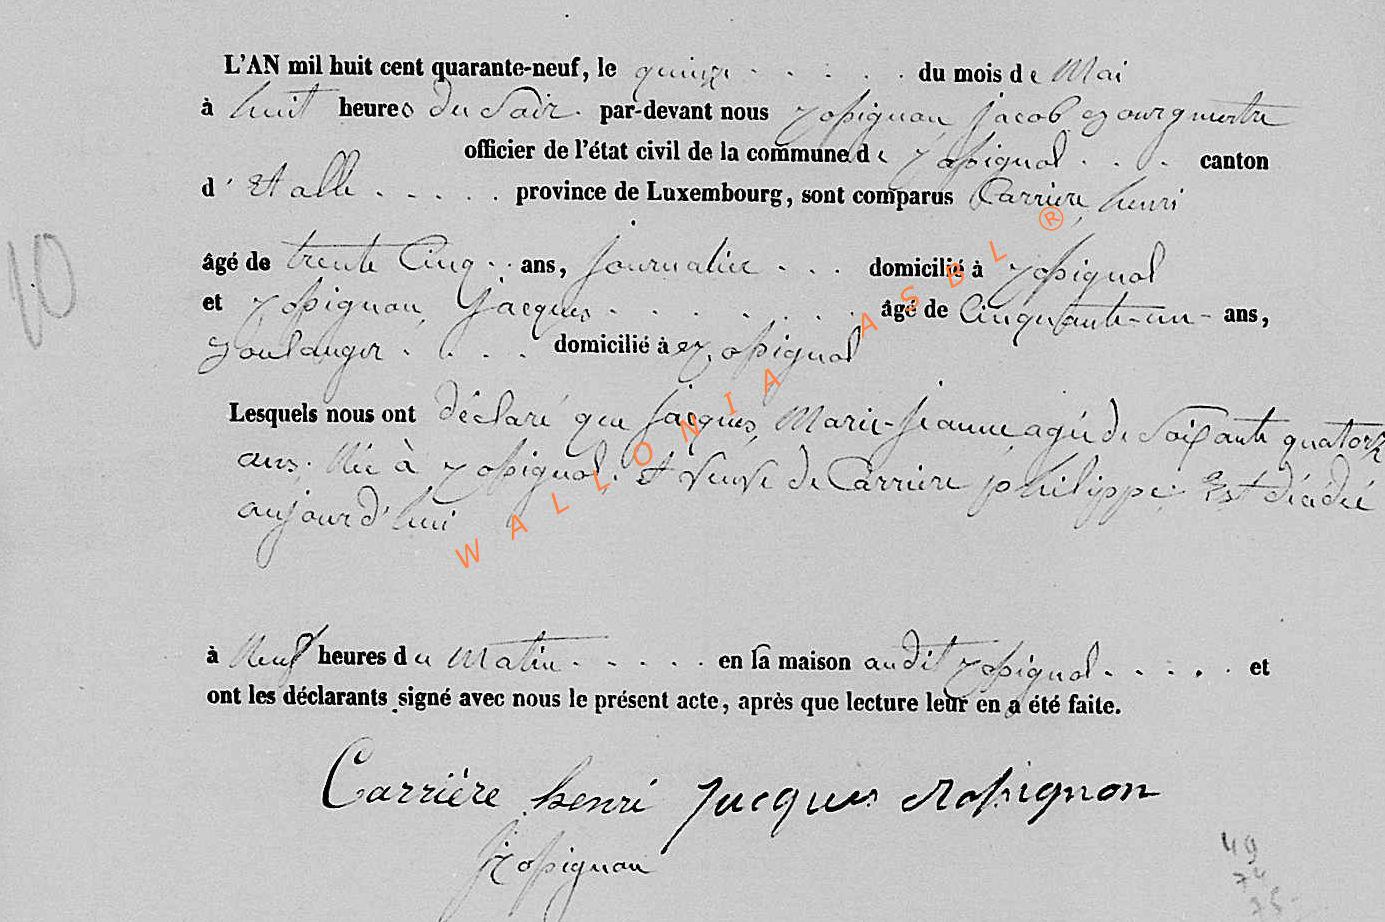 L'AN mil huit cent quarante-neuf, le quinze . . . . . du mois de Mai
à huit heures du Soir. par-devant nous Rossignon Jacob Bourgmestre
officier de l'état civil de la commune de Rossignol . . . canton
d' Etalle . . . . . province de Luxembourg, sont comparus Carrière henri
âgé de trente Cinq . . ans, journalier . . . domicilié à Rossignol
et Rossignon Jacques . . . . . . . âgé de Cinquante-un - ans,
Boulanger . . . . domicilié à Rossignol
Lesquels nous ont déclaré que Jacques, Marie-Jeanne agée de Soixante quatorze
ans. Née à Rossignol. et Veuve de Carrière philippe. Est décédée
aujourd'hui
à Neuf heures du Matin . . . . . en sa maison audit Rossignol . . . . . et
ont les déclarants signé avec nous le présent acte, après que lecture leur en a été faite.
Carrière henri Jacques Rossignon
J Rossignon
10
49
74
75
WALLONIA ASBL ®